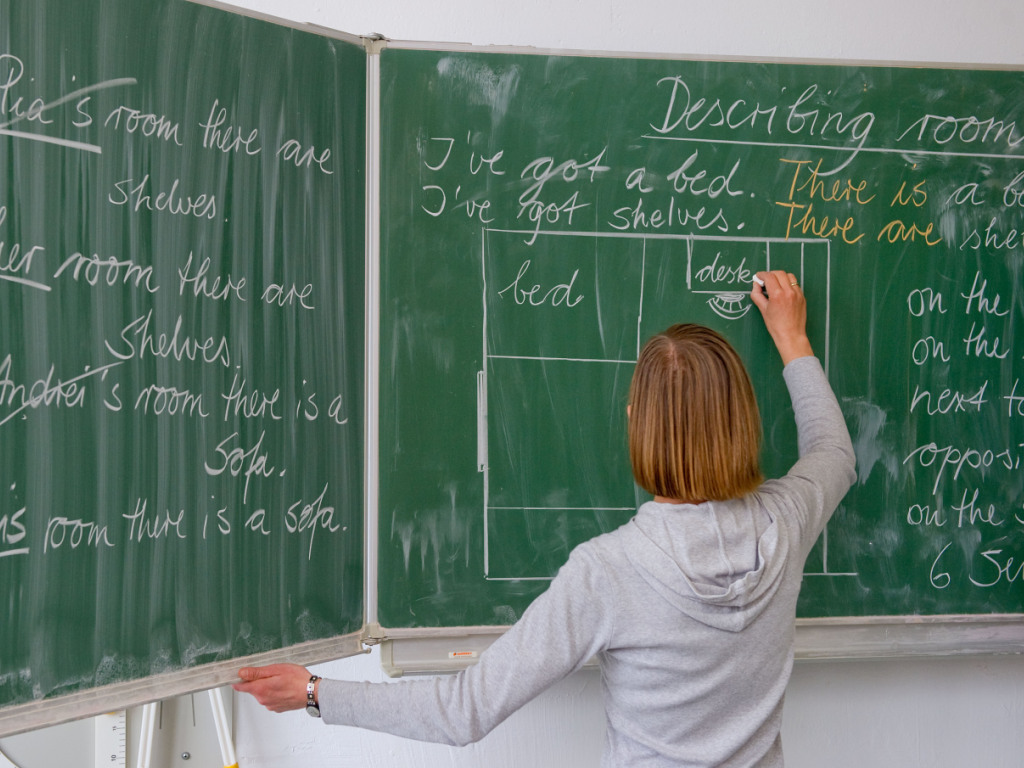 Pia's room there are
shelves.
her room there are
shelves.
Andrei's room there is a
sofa.
room there is a sofa.
Describing room
I've got a bed. There is a
I've got shelves. There are
bed
desk
on the
on the
next
on the
6